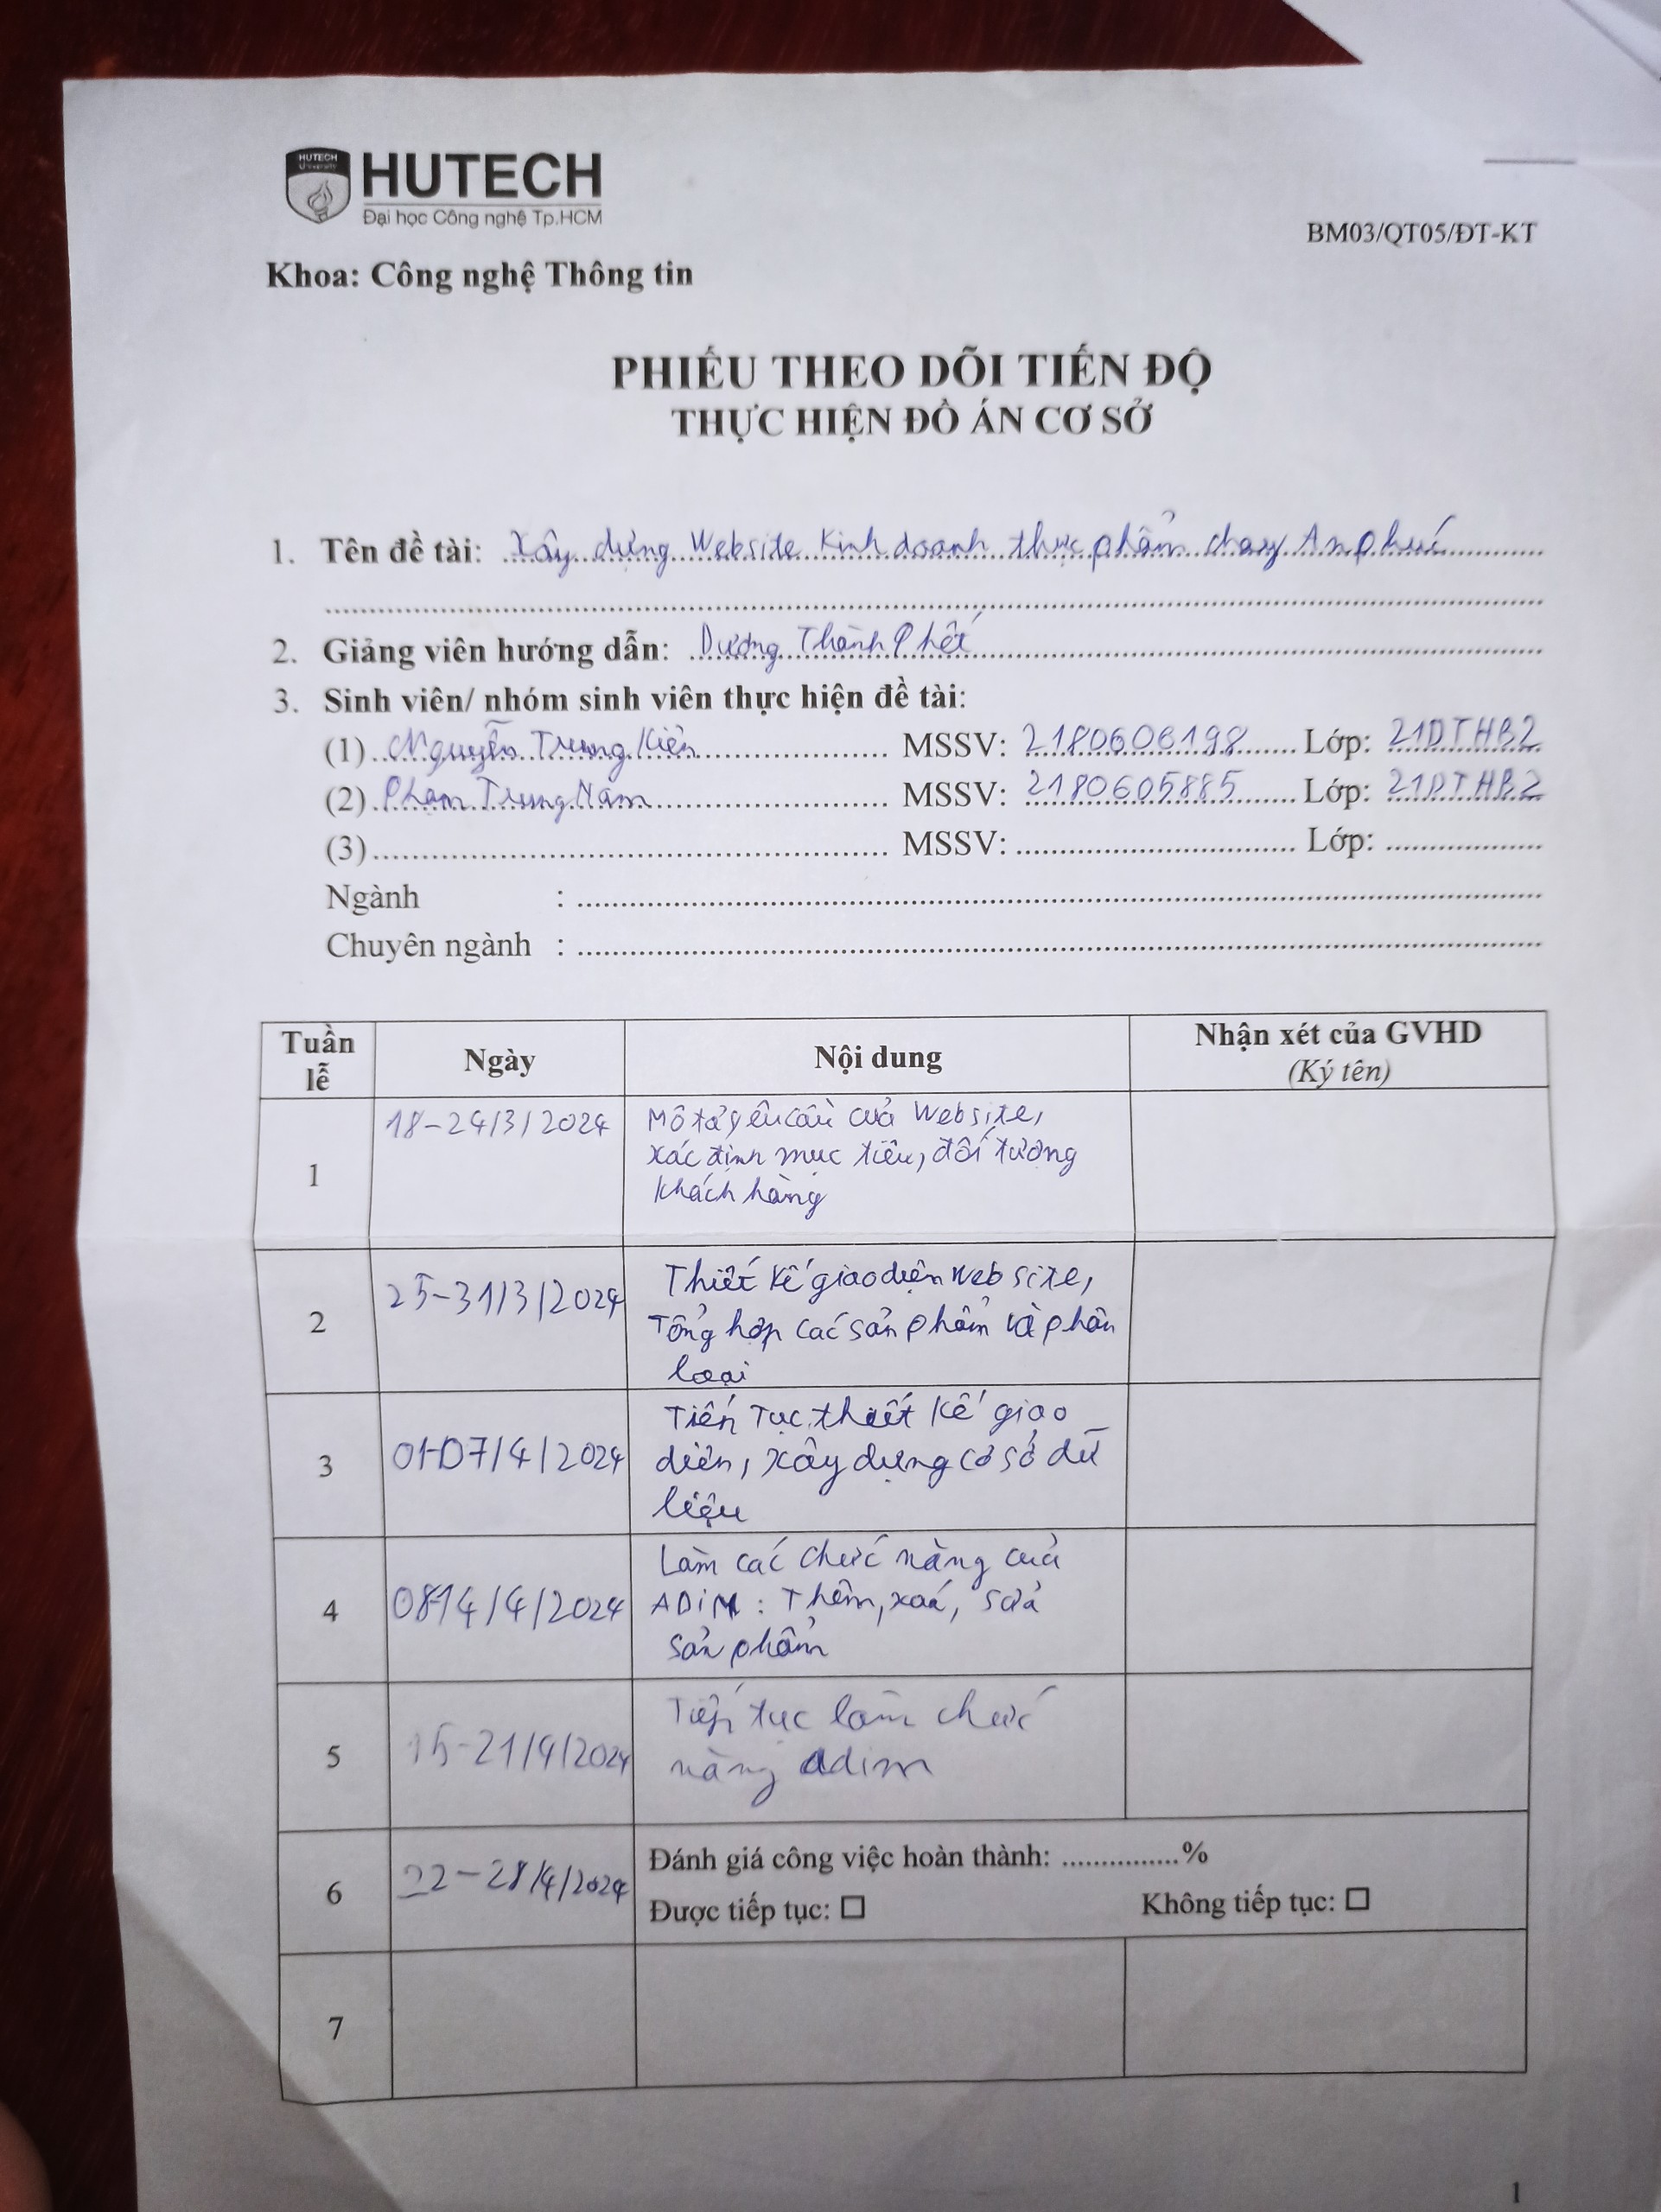 HUTECH
University
HUTECH
Đại học Công nghệ Tp.HCM
BM03/QT05/ĐT-KT
Khoa: Công nghệ Thông tin
PHIẾU THEO DÕI TIẾN ĐỘ
THỰC HIỆN ĐỒ ÁN CƠ SỞ
1. Tên đề tài: Xây dựng Website Kinh doanh thực phẩm chay An phúc
2. Giảng viên hướng dẫn: Dương Thành Phết
3. Sinh viên/ nhóm sinh viên thực hiện đề tài:
(1) Nguyễn Trung Kiên MSSV: 2180606198 Lớp: 21DTHB2
(2) Phạm Trung Nam MSSV: 2180605885 Lớp: 21DTHB2
(3) MSSV: Lớp:
Ngành :
Chuyên ngành :
Tuần lễ Ngày Nội dung Nhận xét của GVHD
(Ký tên)
1 18-24/3/2024 Mô tả yêu cầu của Website,
xác định mục tiêu, đối tượng
khách hàng
2 25-31/3/2024 Thiết kế giao diện Web site,
Tổng hợp các sản phẩm và phân
loại
3 01-07/4/2024 Tiến Tục thiết kế giao
diên, xây dựng cơ sở dữ
liệu
4 08-14/4/2024 Làm các chức năng của
ADiM : Thêm, xoá, sửa
sản phẩm
5 15-21/4/2024 Tiếp tục làm chức
năng adim
6 22-28/4/2024 Đánh giá công việc hoàn thành: ...............%
Được tiếp tục: ☐ Không tiếp tục: ☐
7
1